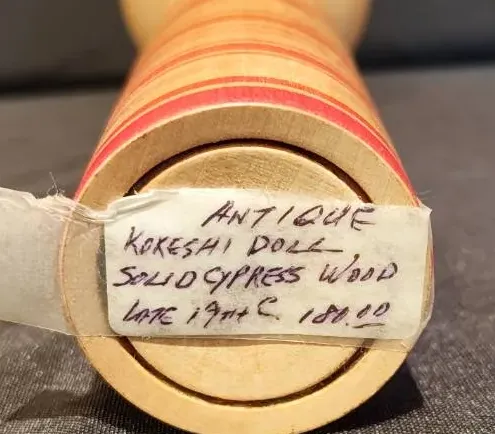 ANTIQUE
KOKESHI DOLL
SOLID CYPRESS WOOD
LATE 19TH C. 180.00